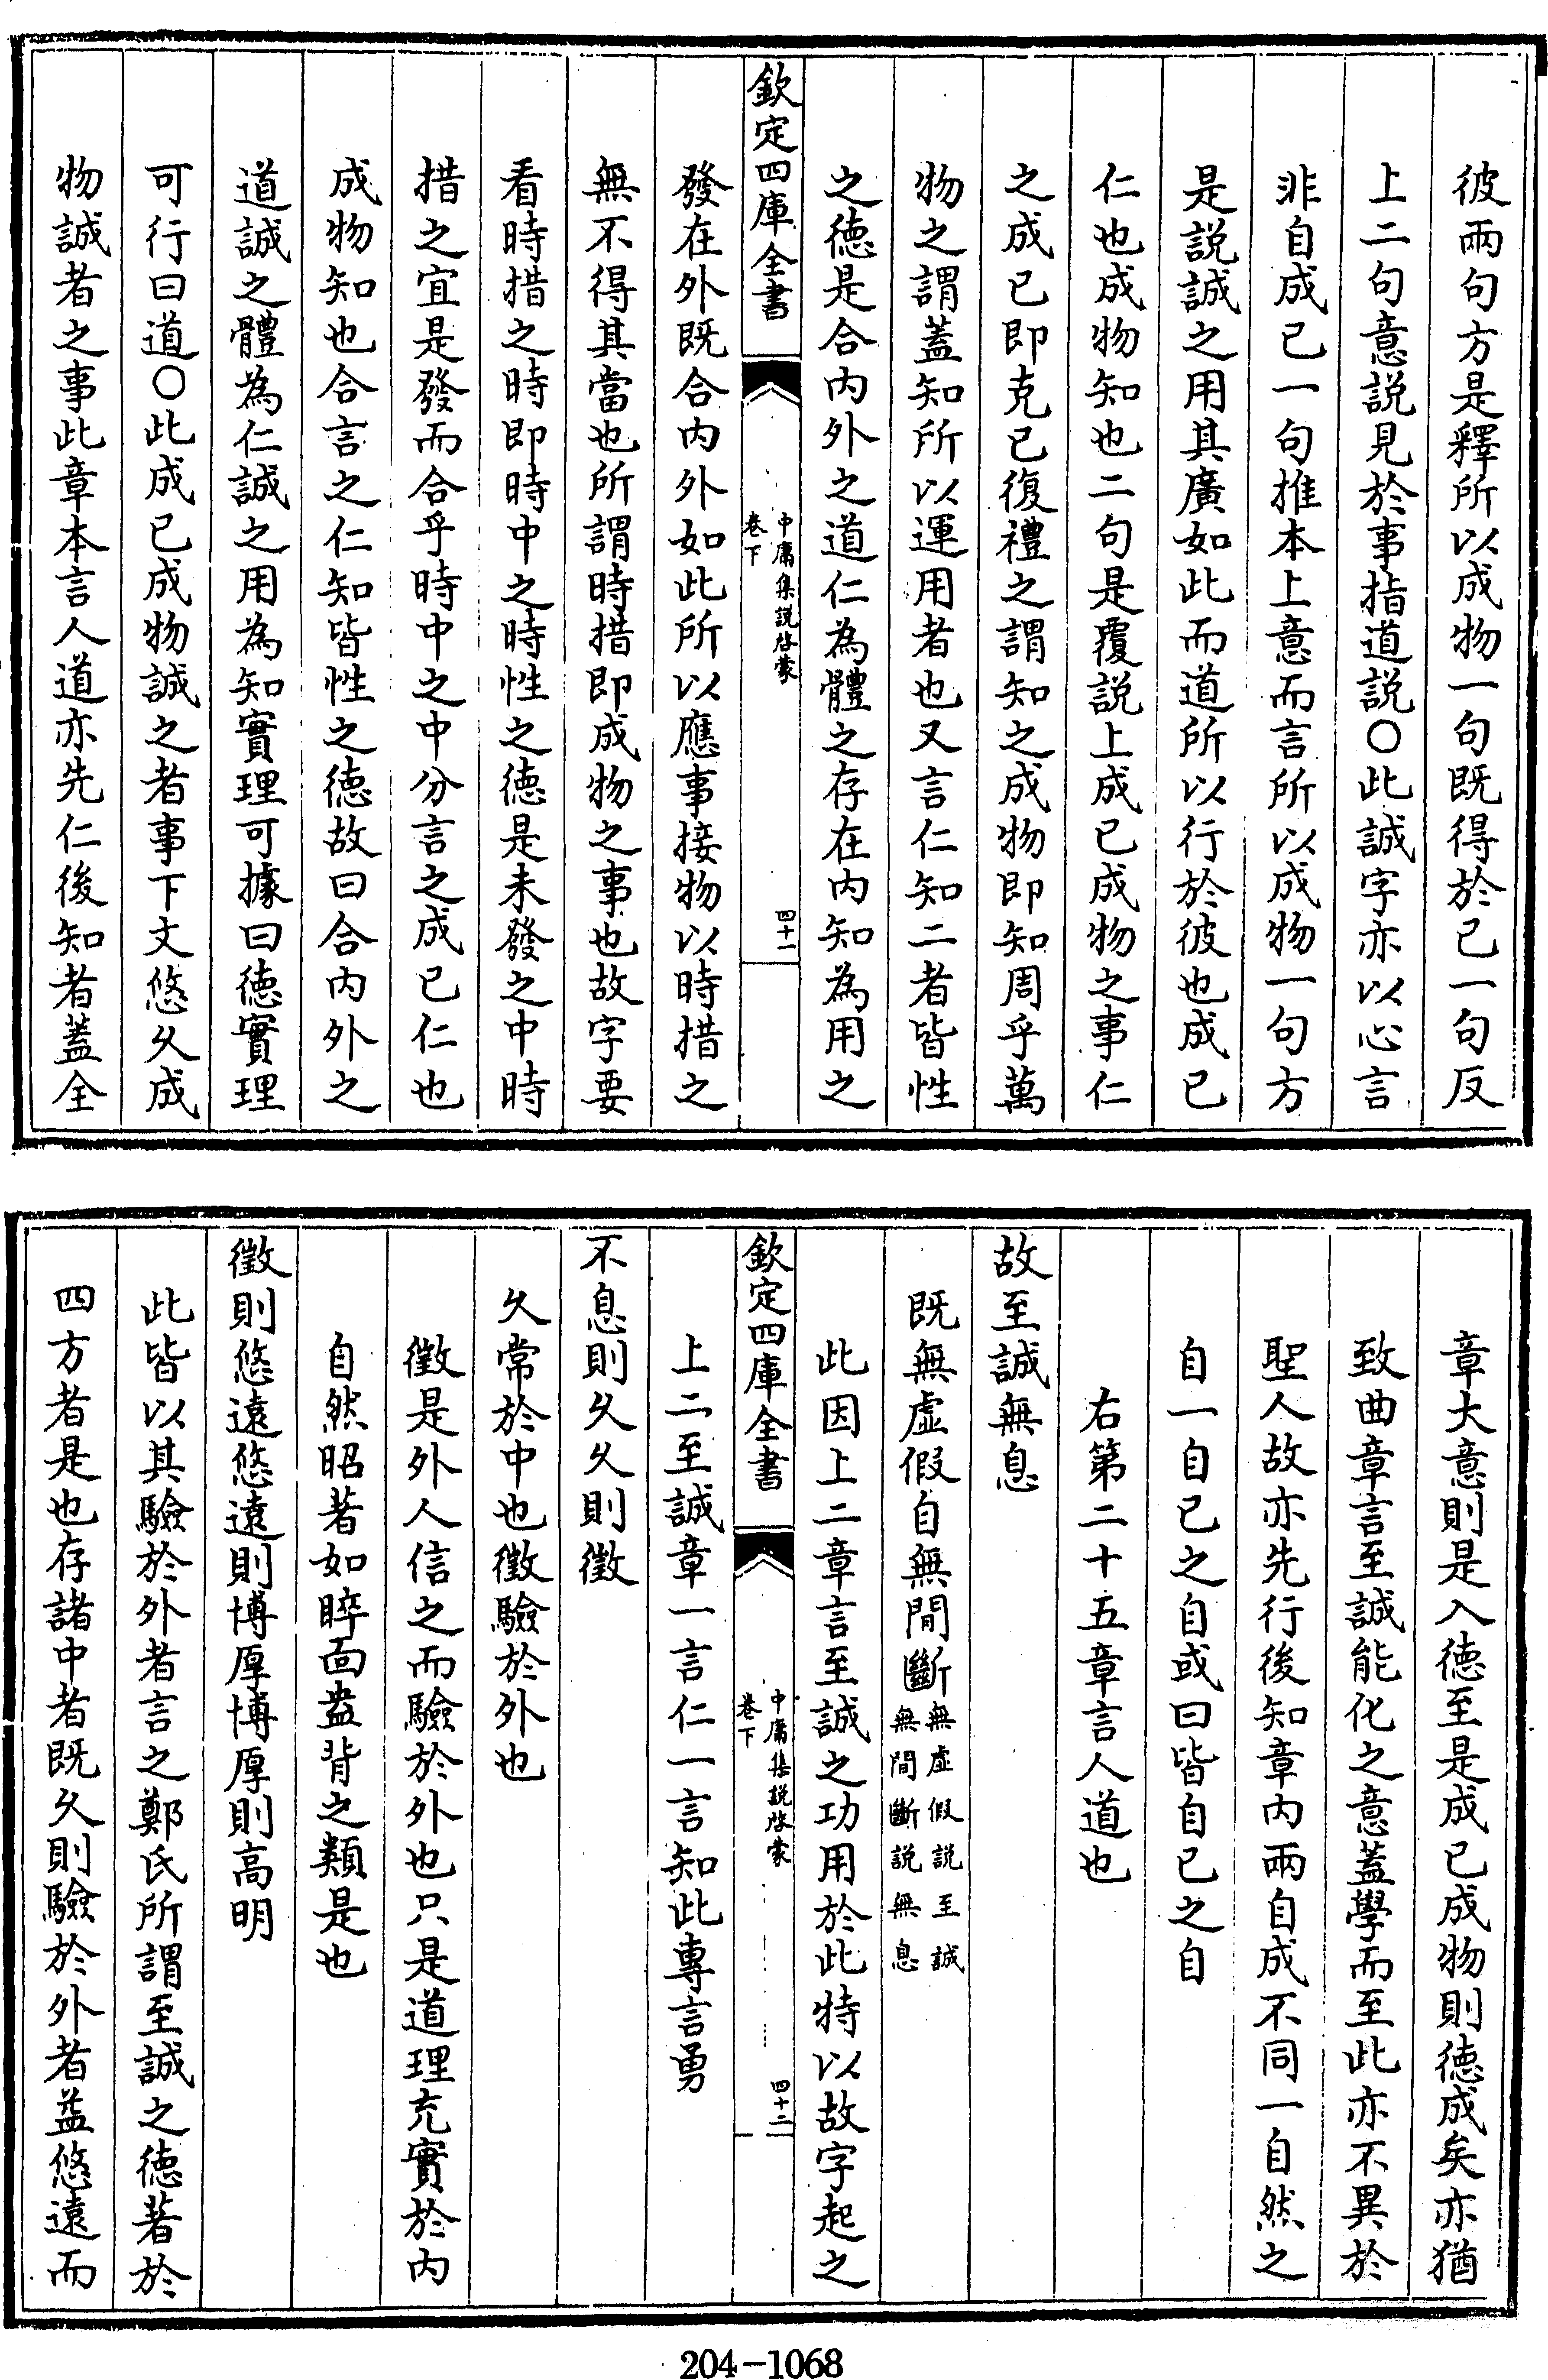 彼兩句方是釋所以成物一句既得於已一句反
上二句意説見於事指道説〇此誠字亦以心言
非自成已一句推本上意而言所以成物一句方
是説誠之用其廣如此而道所以行於彼也成已
仁也成物知也二句是覆説上成已成物之事仁
之成已即克已復禮之謂知之成物即知周乎萬
物之謂蓋知所以運用者也又言仁知二者皆性
之徳是合内外之道仁為體之存在内知為用之
欽定四庫全書
中庸集説啓蒙
卷下
四十一
發在外既合内外如此所以應事接物以時措之
無不得其當也所謂時措即成物之事也故字要
看時措之時即時中之時性之徳是未發之中時
措之宜是發而合乎時中之中分言之成已仁也
成物知也合言之仁知皆性之徳故曰合内外之
道誠之體為仁誠之用為知實理可據曰徳實理
可行曰道〇此成已成物誠之者事下文悠久成
物誠者之事此章本言人道亦先仁後知者蓋全
章大意則是入徳至是成已成物則徳成矣亦猶
致曲章言至誠能化之意蓋學而至此亦不異於
聖人故亦先行後知章内兩自成不同一自然之
自一自已之自或曰皆自已之自
右第二十五章言人道也
故至誠無息
既無虚假自無間斷無虚假説至誠
無間斷説無息
此因上二章言至誠之功用於此特以故字起之
欽定四庫全書
中庸集説啓蒙
卷下
四十二
上二至誠章一言仁一言知此專言勇
不息則久久則徵
久常於中也徵驗於外也
徵是外人信之而驗於外也只是道理充實於内
自然昭著如睟面盎背之類是也
徵則悠遠悠遠則博厚博厚則高明
此皆以其驗於外者言之鄭氏所謂至誠之徳著於
四方者是也存諸中者既久則驗於外者益悠遠而
204-1068